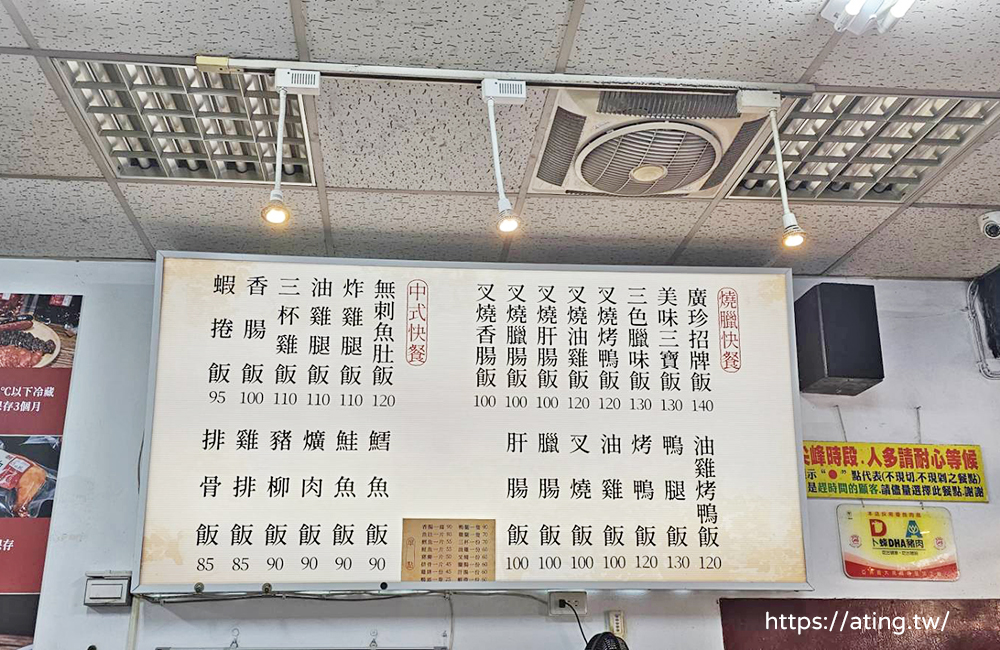 燒臘快餐
廣珍招牌飯 140
美味三寶飯 130
三色臘味飯 130
叉燒烤鴨飯 120
叉燒油雞飯 120
叉燒肝腸飯 100
叉燒臘腸飯 100
叉燒香腸飯 100
油雞烤鴨飯 120
鴨腿飯 130
烤鴨飯 120
油雞飯 100
叉燒飯 100
臘腸飯 100
肝腸飯 100
中式快餐
無刺魚肚飯 120
炸雞腿飯 110
油雞腿飯 110
三杯雞飯 110
香腸飯 100
蝦捲飯 95
鱈魚飯 90
鮭魚飯 90
爌肉飯 90
豬柳飯 90
雞排飯 85
排骨飯 85
單點
℃以下冷藏
保存3個月
尖峰時段.人多請耐心等候
點代表(不現切.不現剁之餐點)
是趕時間的顧客.請儘量選擇此餐點.謝謝
卜蜂DHA豬肉
https://ating.tw/